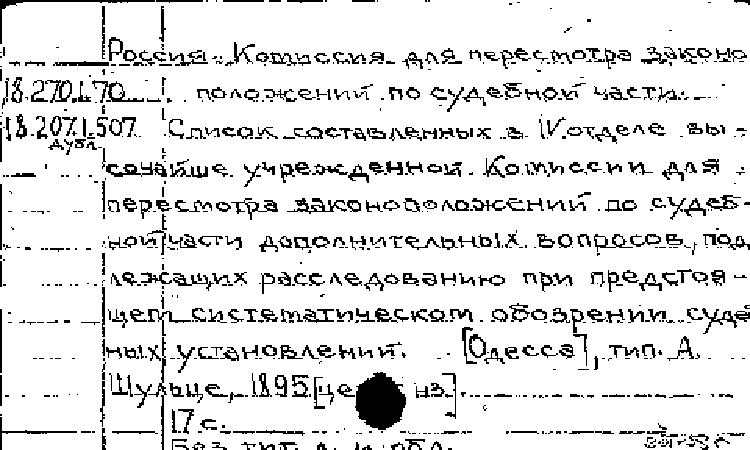 Россия. Комиссия для пересмотра законо
18.270.1.70 положений по судебной части.
18.207.1.507 Список составленных в IV отделе вы-
дубл.
сочайше учрежденной Комиссии для
пересмотра законоположений по судеб-
ной части дополнительных вопросов, под
лежащих расследованию при предстоя-
щем систематическом обозрении суде
ных установлений. [Одесса], тип. А.
Шульце, 1895 [це нз].
17 с.
Без тит. л. и обл.